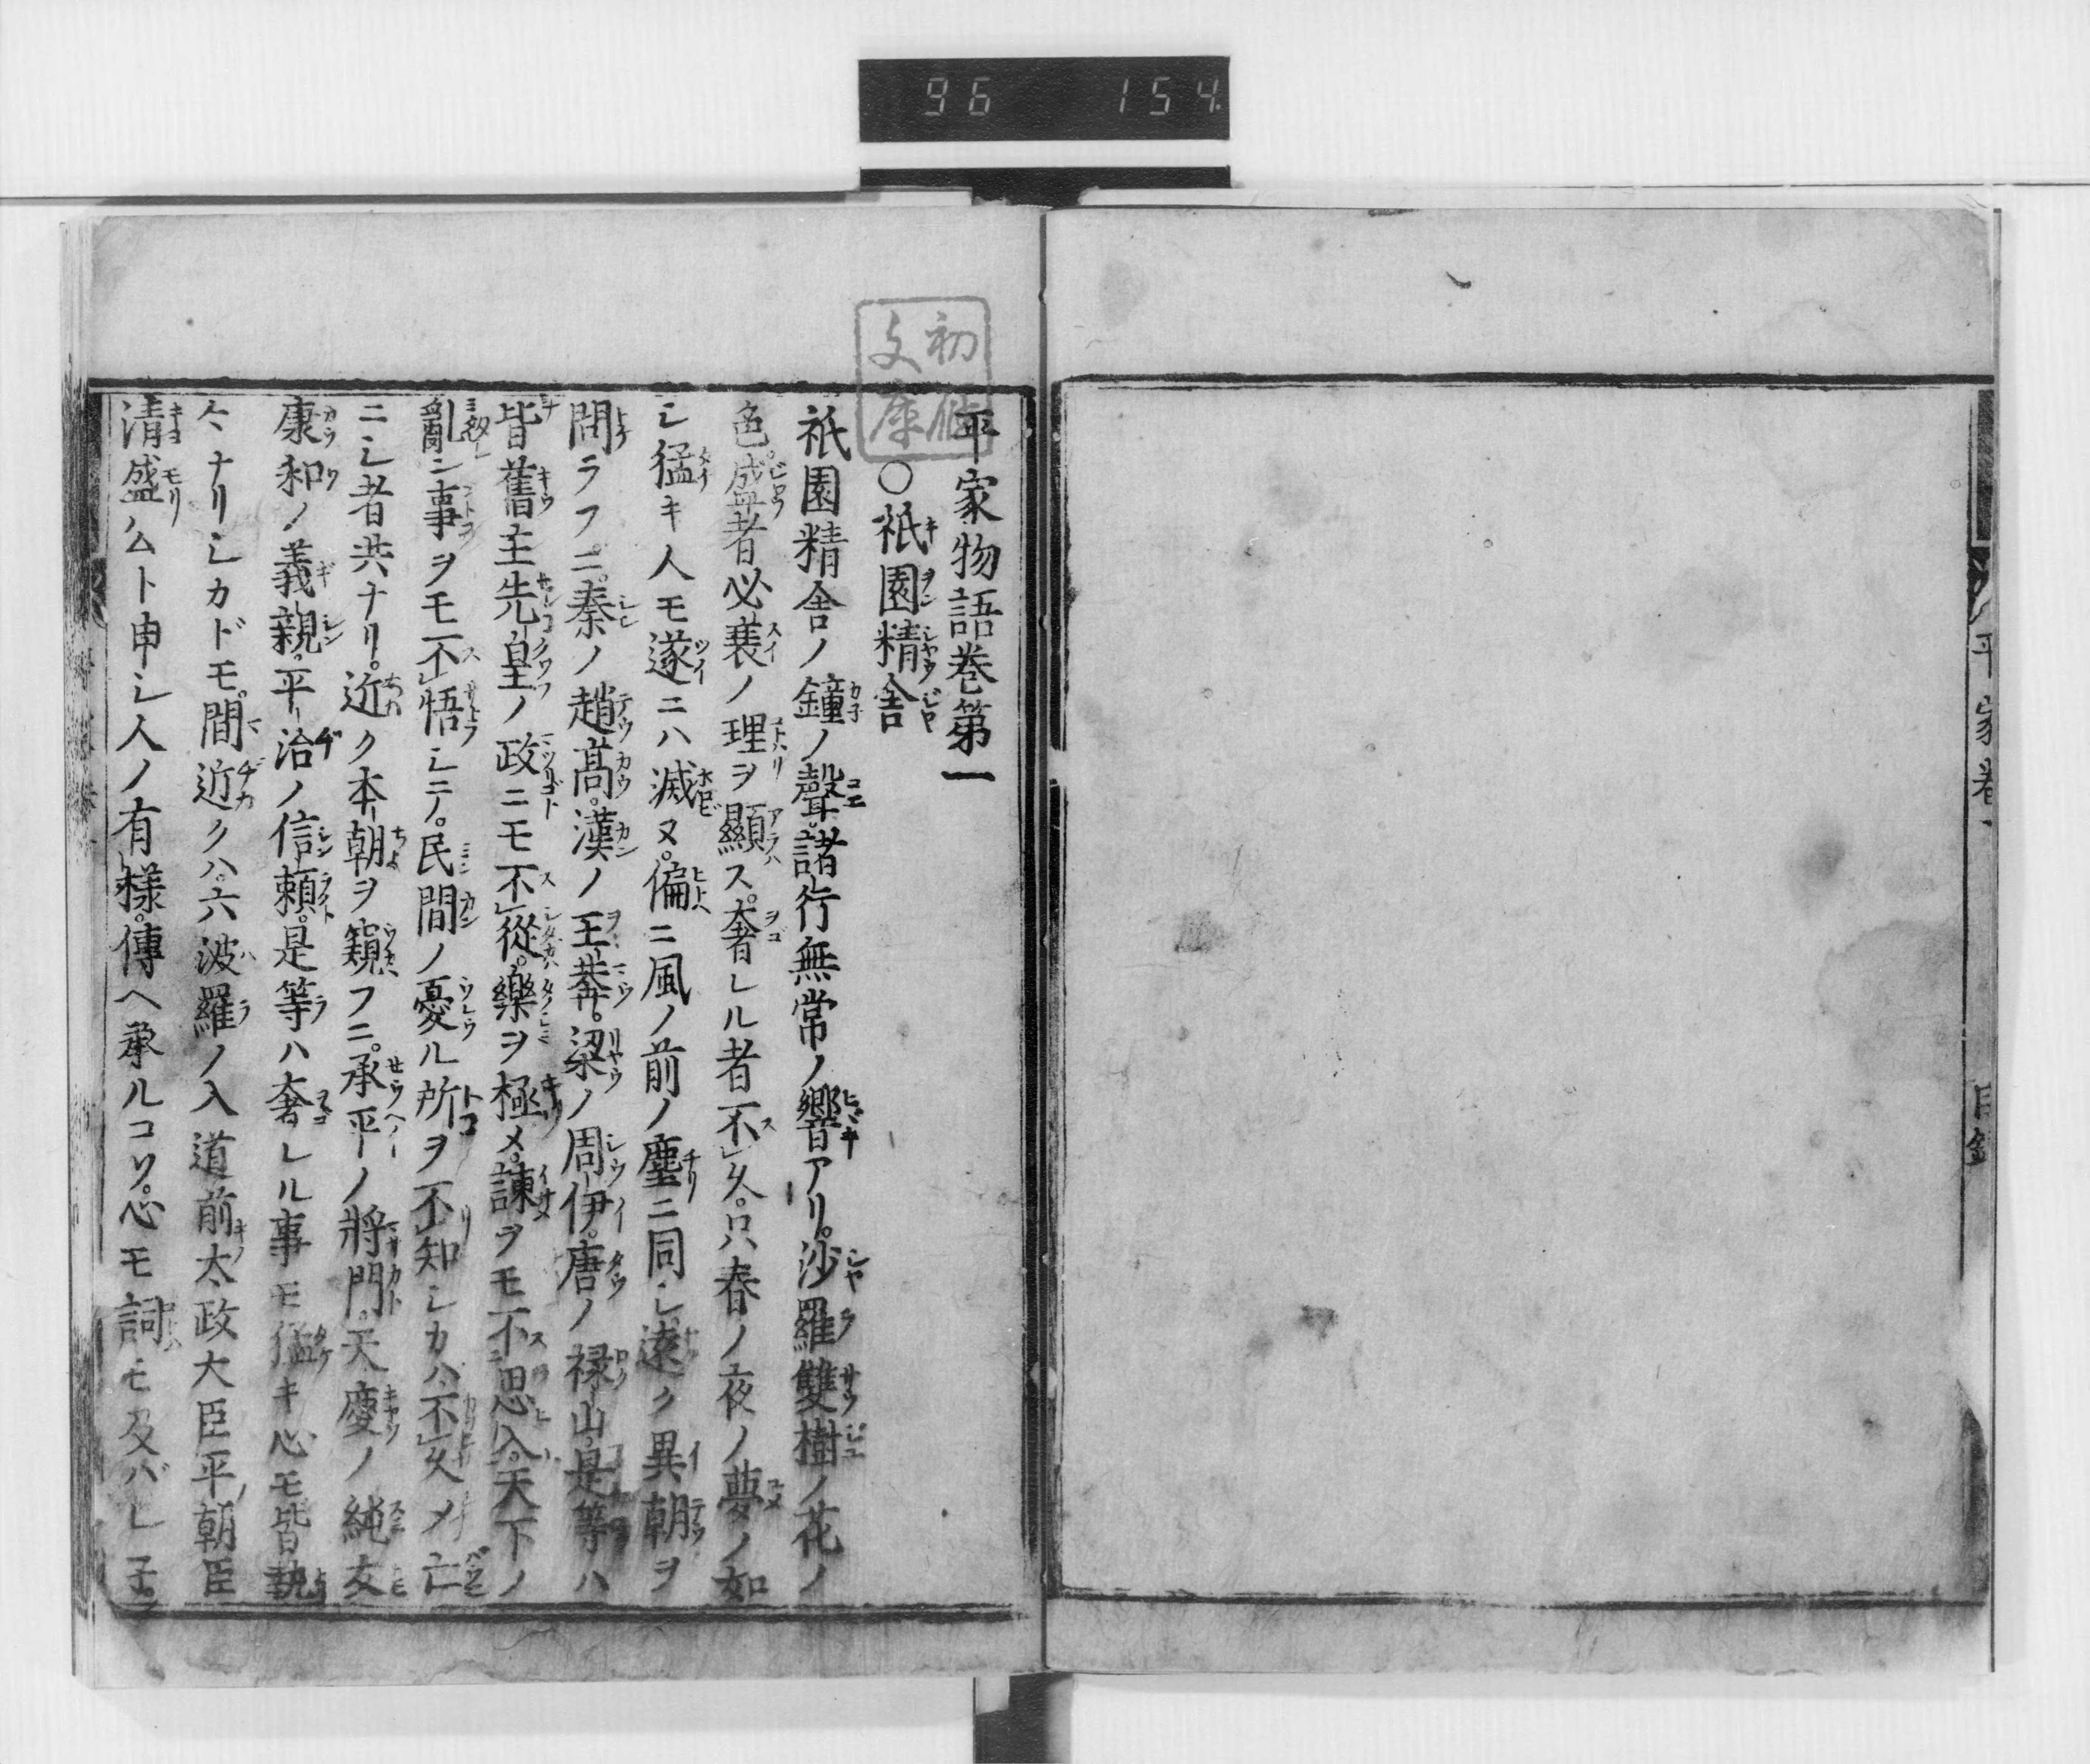 96 154
平家卷一
目錄
初雁文庫
平家物語巻第一
○祇園精舎
祇園精舎ノ鐘ノ聲。諸行無常ノ響アリ。沙羅雙樹ノ花ノ
色。盛者必衰ノ理ヲ顯ス。奢レル者不久。只春ノ夜ノ夢ノ如
シ猛キ人モ遂ニハ滅ヌ。偏ニ風ノ前ノ塵ニ同シ遠ク異朝ヲ
問ラフニ。秦ノ趙高。漢ノ王莽。梁ノ周伊。唐ノ禄山是等ハ
皆舊主先皇ノ政ニモ不從。樂ヲ極メ。諫ヲモ不思入。天下ノ
亂ン事ヲモ不悟シテ。民間ノ憂ル所ヲ不知シカハ不久メ亡
ニシ者共ナリ。近ク本朝ヲ窺フニ。承平ノ將門。天慶ノ純友
康和ノ義親。平治ノ信頼。是等ハ奢レル事モ猛キ心モ皆執
々ナリシカドモ。間近クハ。六波羅ノ入道前太政大臣平朝臣
清盛公ト申シ人ノ有様。傳ヘ承ルコソ。心モ詞モ及バレ子。